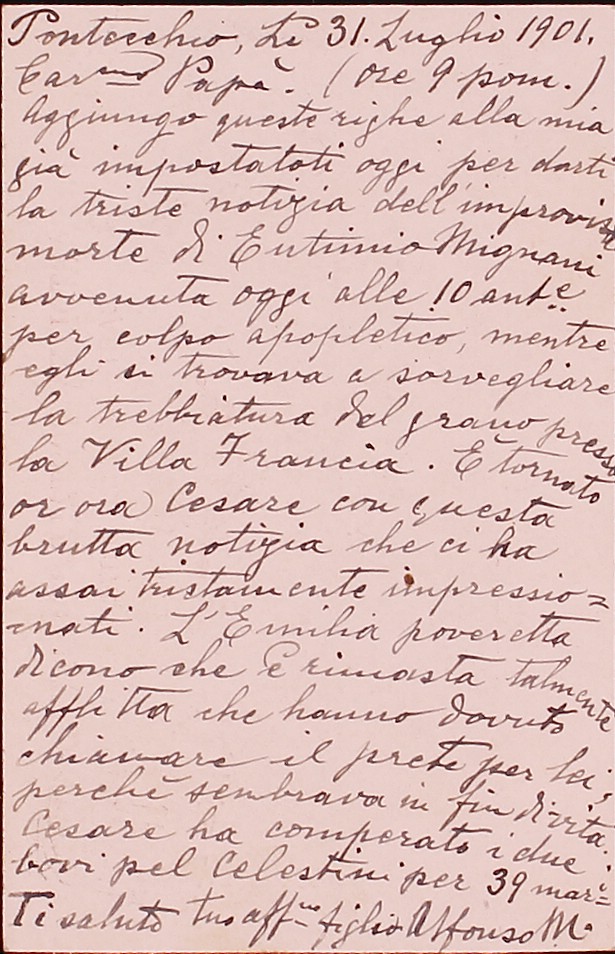 Pontecchio, Lì 31. Luglio 1901.
Car.mo Papà. (ore 9 pom.)
Aggiungo queste righe alla mia
già impostatati oggi per darti
la triste notizia dell'improvisa
morte di Eutimio Mignani
avvenuta oggi alle 10 ant.e
per colpo apopletico, mentre
egli si trovava a sorvegliare
la trebbiatura del grano presso
la Villa Francia. È tornato
or ora Cesare con questa
brutta notizia che ci ha
assai tristamente impressio=
=nati. L'Emilia poveretta
dicono che è rimasta talmente
afflitta che hanno dovuto
chiamare il prete per lei,
perchè sembrava in fin di vita.
Cesare ha comperato i due
bovi pel Celestini per 39 mar.e
Ti saluto tuo aff.mo figlio Alfonso M.